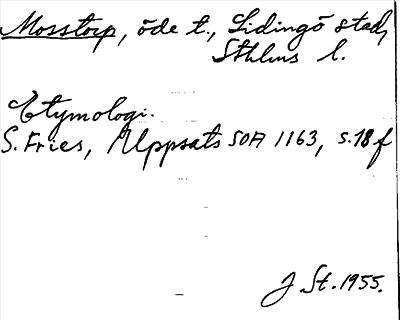 Mosstorp, öde t., Lidingö stad,
Sthlms l.
Etymologi.
S. Fries, Uppsats SOA 1163, s. 18 f
J. St. 1955.